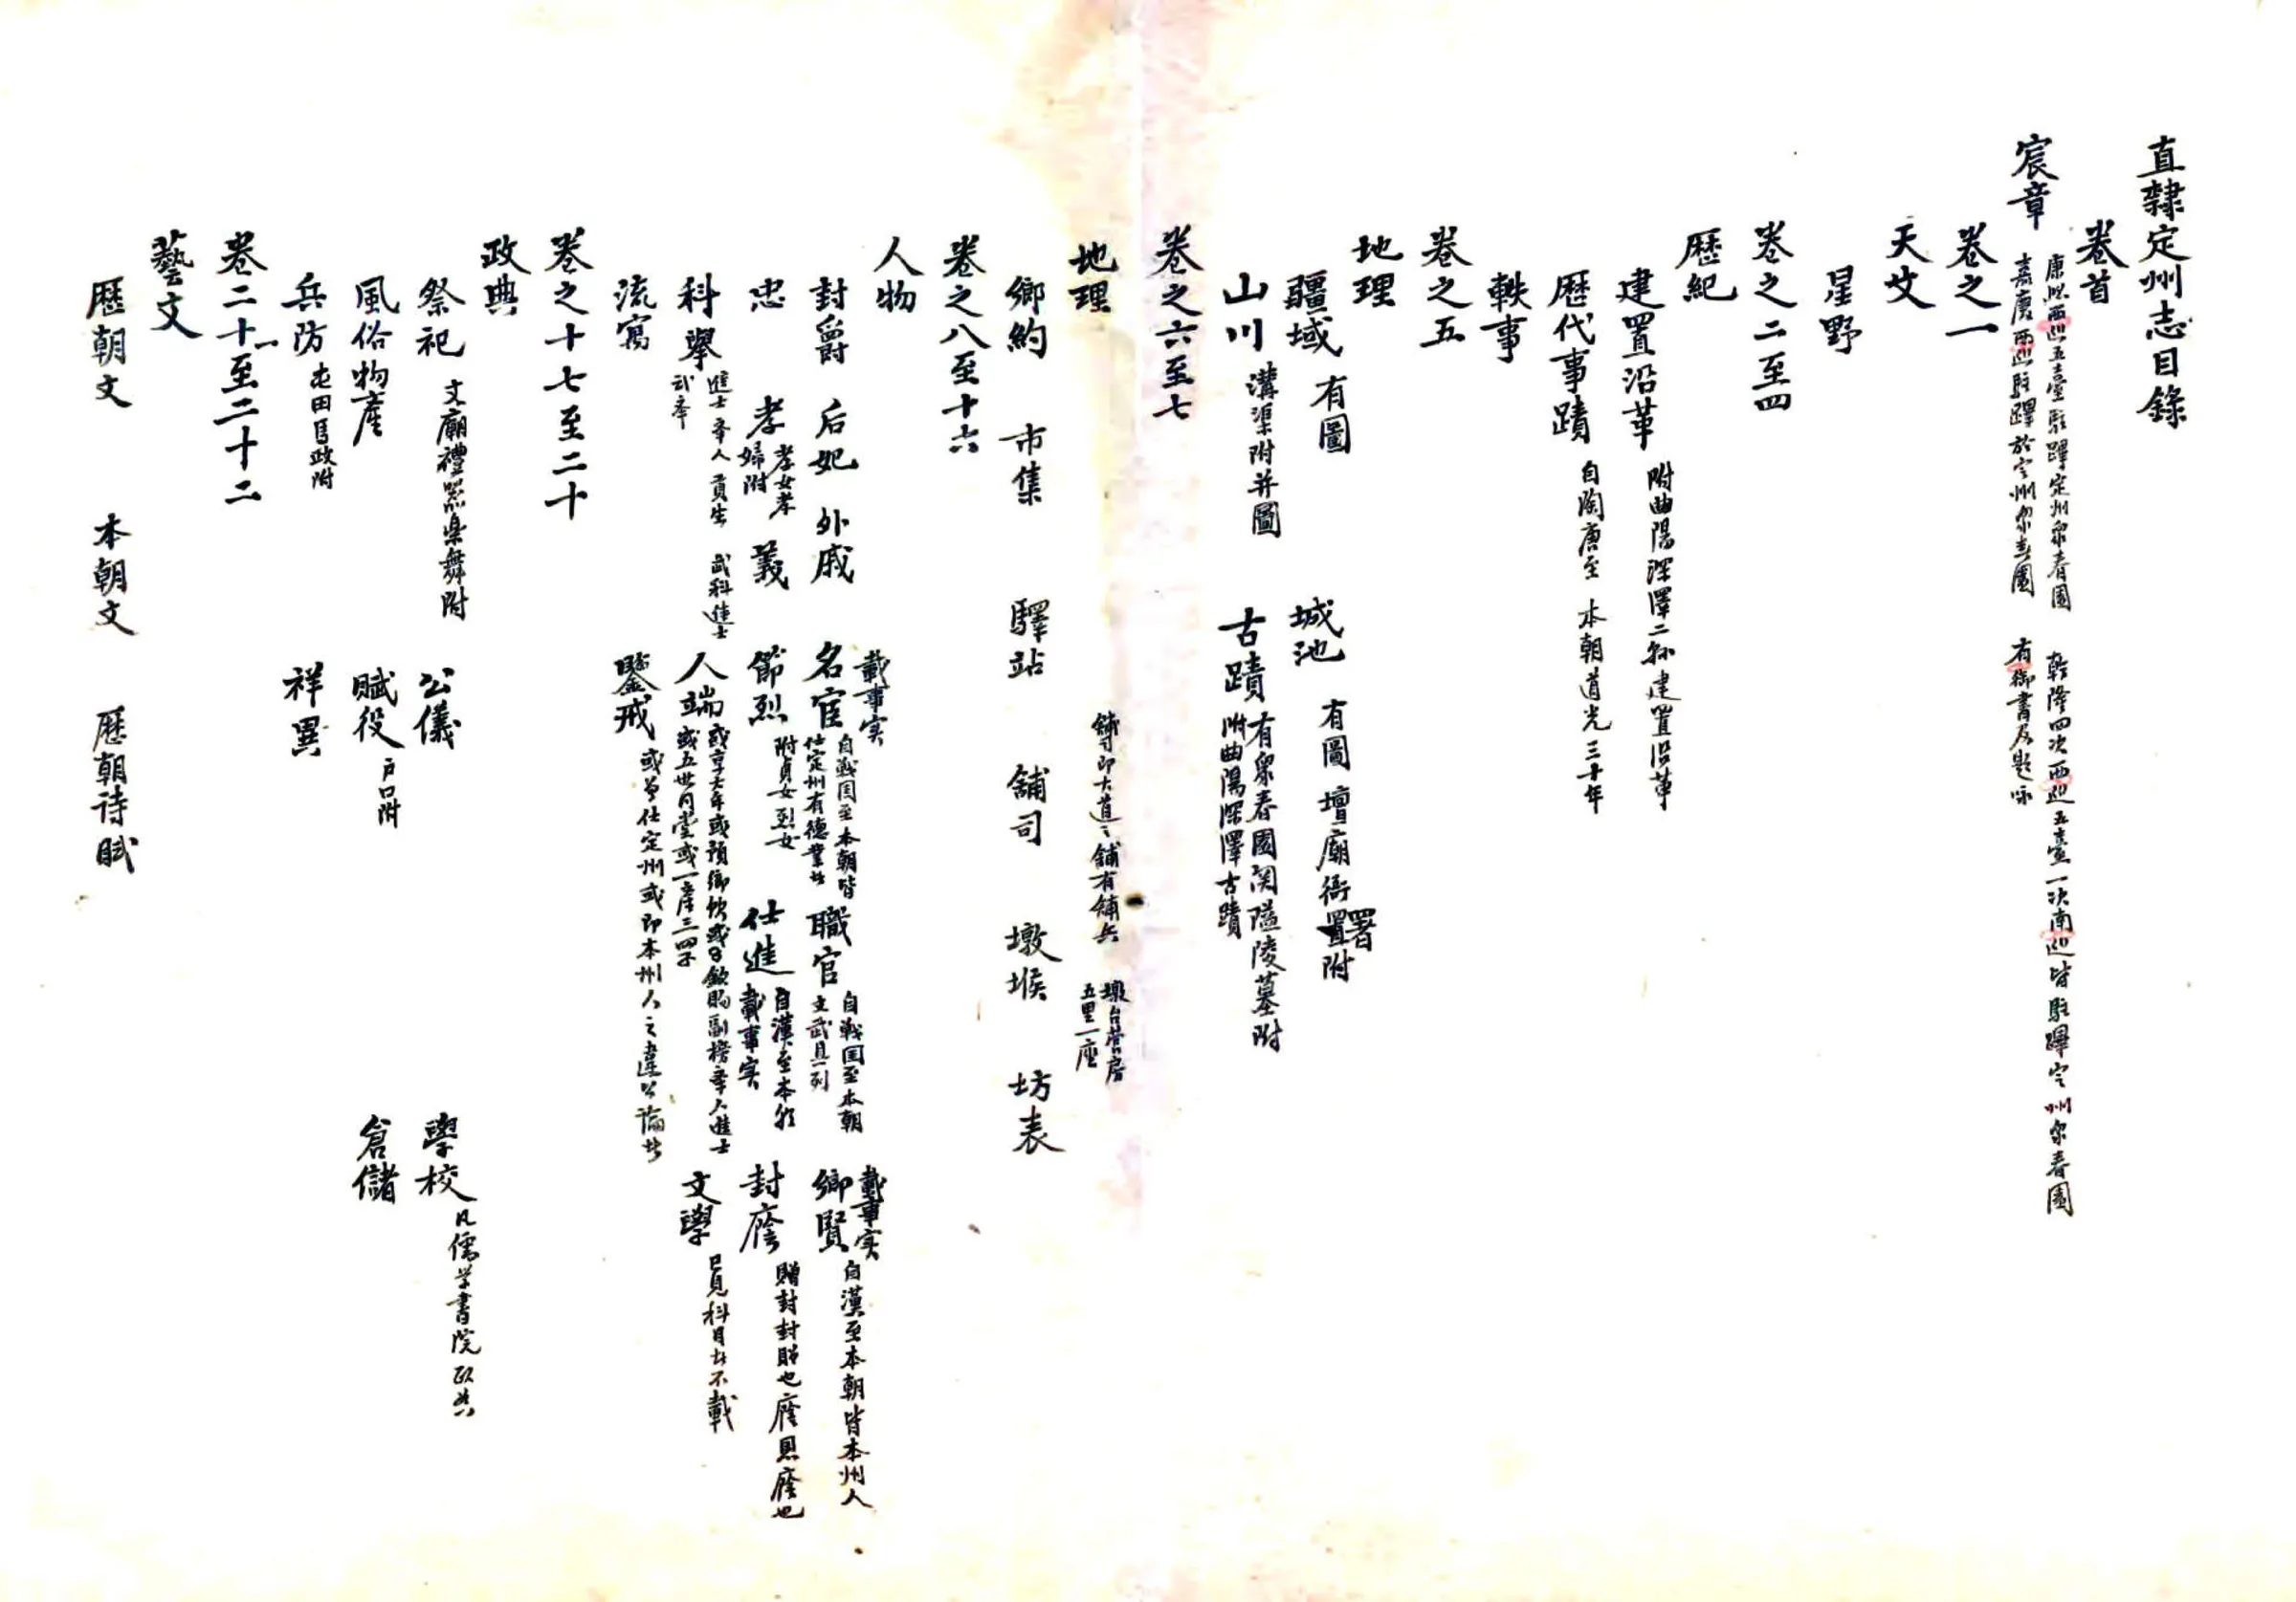 直隸定州志目錄
卷首
宸章 康熙西巡五臺駐蹕定州眾春園 乾隆四次西巡五臺一次南巡皆駐蹕定州眾春園
嘉慶西巡駐蹕於定州眾春園 有御書及題咏
卷之一
天文
星野
卷之二至四
歷紀
建置沿革 附曲陽深澤二縣建置沿革
歷代事蹟 自陶唐至 本朝道光三十年
軼事
卷之五
地理
疆域 有圖 城池 有圖 壇廟衙署附
山川 溝渠附并圖 古蹟 有眾春園關隘陵墓附
附曲陽深澤古蹟
卷之六至七
地理 舖司即大道之舖有舖兵 墩台營房
五里一座
鄉約 市集 驛站 舖司 墩堠 坊表
卷之八至十六
人物
載事实 載事实
封爵 后妃 外戚 名宦 自戰国至本朝皆
仕定州有德業者 職官 自戰国至本朝
文武具列 鄉賢 自漢至本朝皆本州人
忠 孝 孝女孝
婦附 義 節烈 附貞女烈女 仕進 自漢至本朝
載事实 封廕 贈封封贈也廕恩廕也
科舉 進士 举人 貢生 武科進士
武举 人端 或享大年或預鄉飲或 欽賜副榜举人進士
或五世同堂或一產三四子 文學 已見科目者不載
流寓 鑒戒 或曾仕定州或即本州人之違公論者
卷之十七至二十
政典
祭祀 文廟禮器樂舞附 公儀 學校 凡儒学書院
風俗物產 賦役 戶口附 倉儲
兵防 屯田馬政附 祥異
卷二十一至二十二
藝文
歷朝文 本朝文 歷朝詩賦